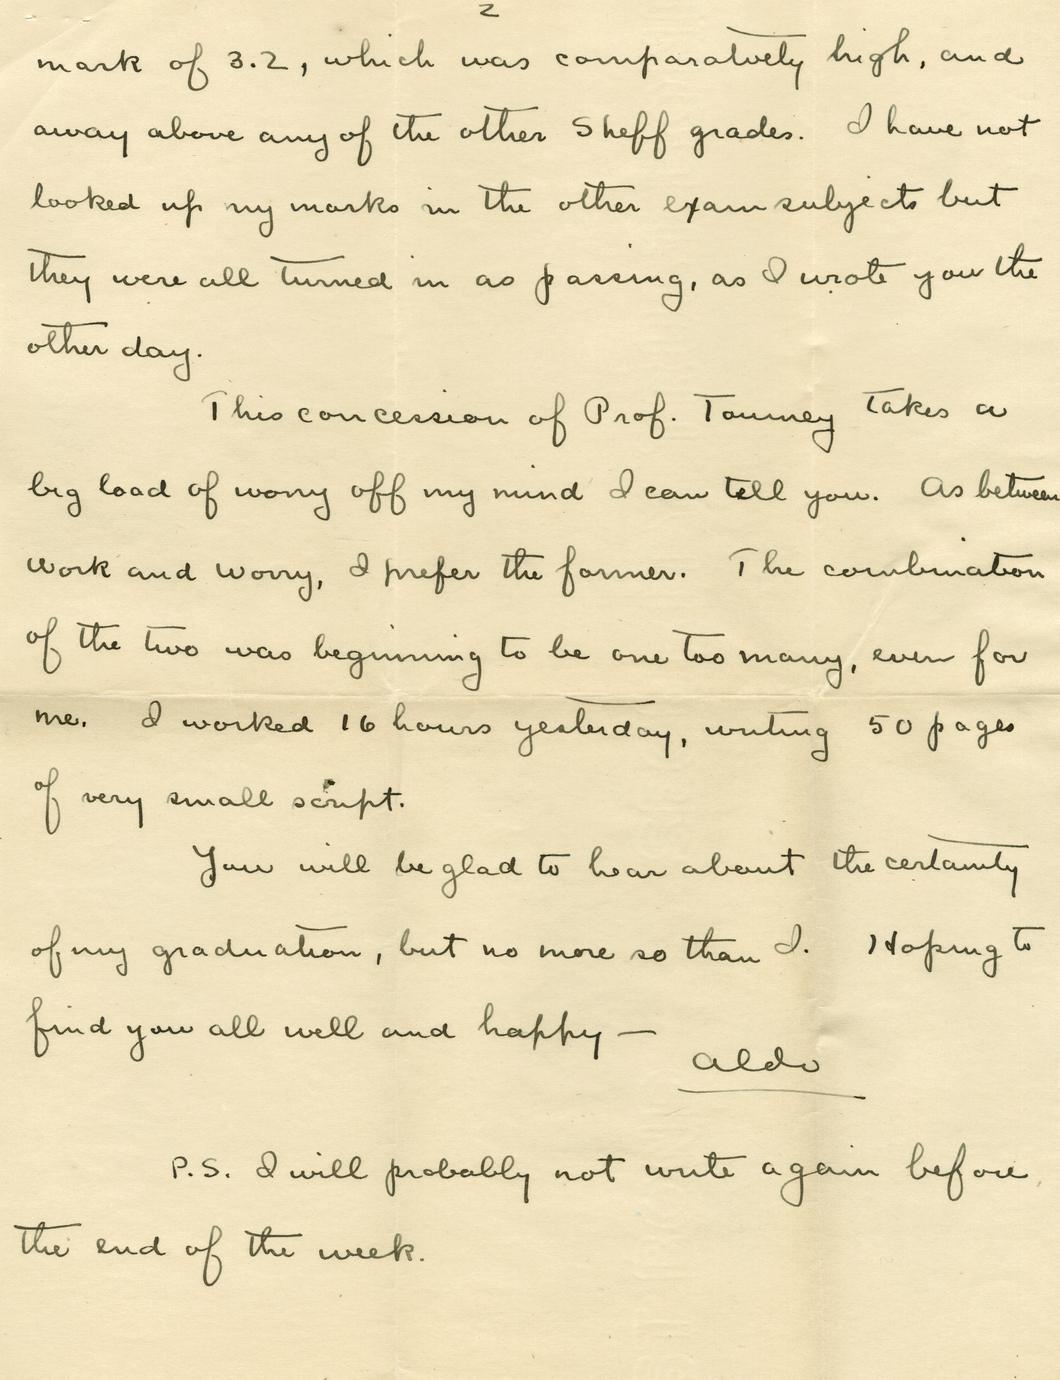 2
mark of 3.2, which was comparatively high, and
away above any of the other Sheff grades. I have not
looked up my marks in the other exam subjects but
they were all turned in as passing, as I wrote you the
other day.
This concession of Prof. Toumey takes a
big load of worry off my mind I can tell you. As between
work and worry, I prefer the former. The combination
of the two was beginning to be one too many, even for
me. I worked 16 hours yesterday, writing 50 pages
of very small script.
You will be glad to hear about the certainty
of my graduation, but no more so than I. Hoping to
find you all well and happy —
Aldo
P.S. I will probably not write again before
the end of the week.